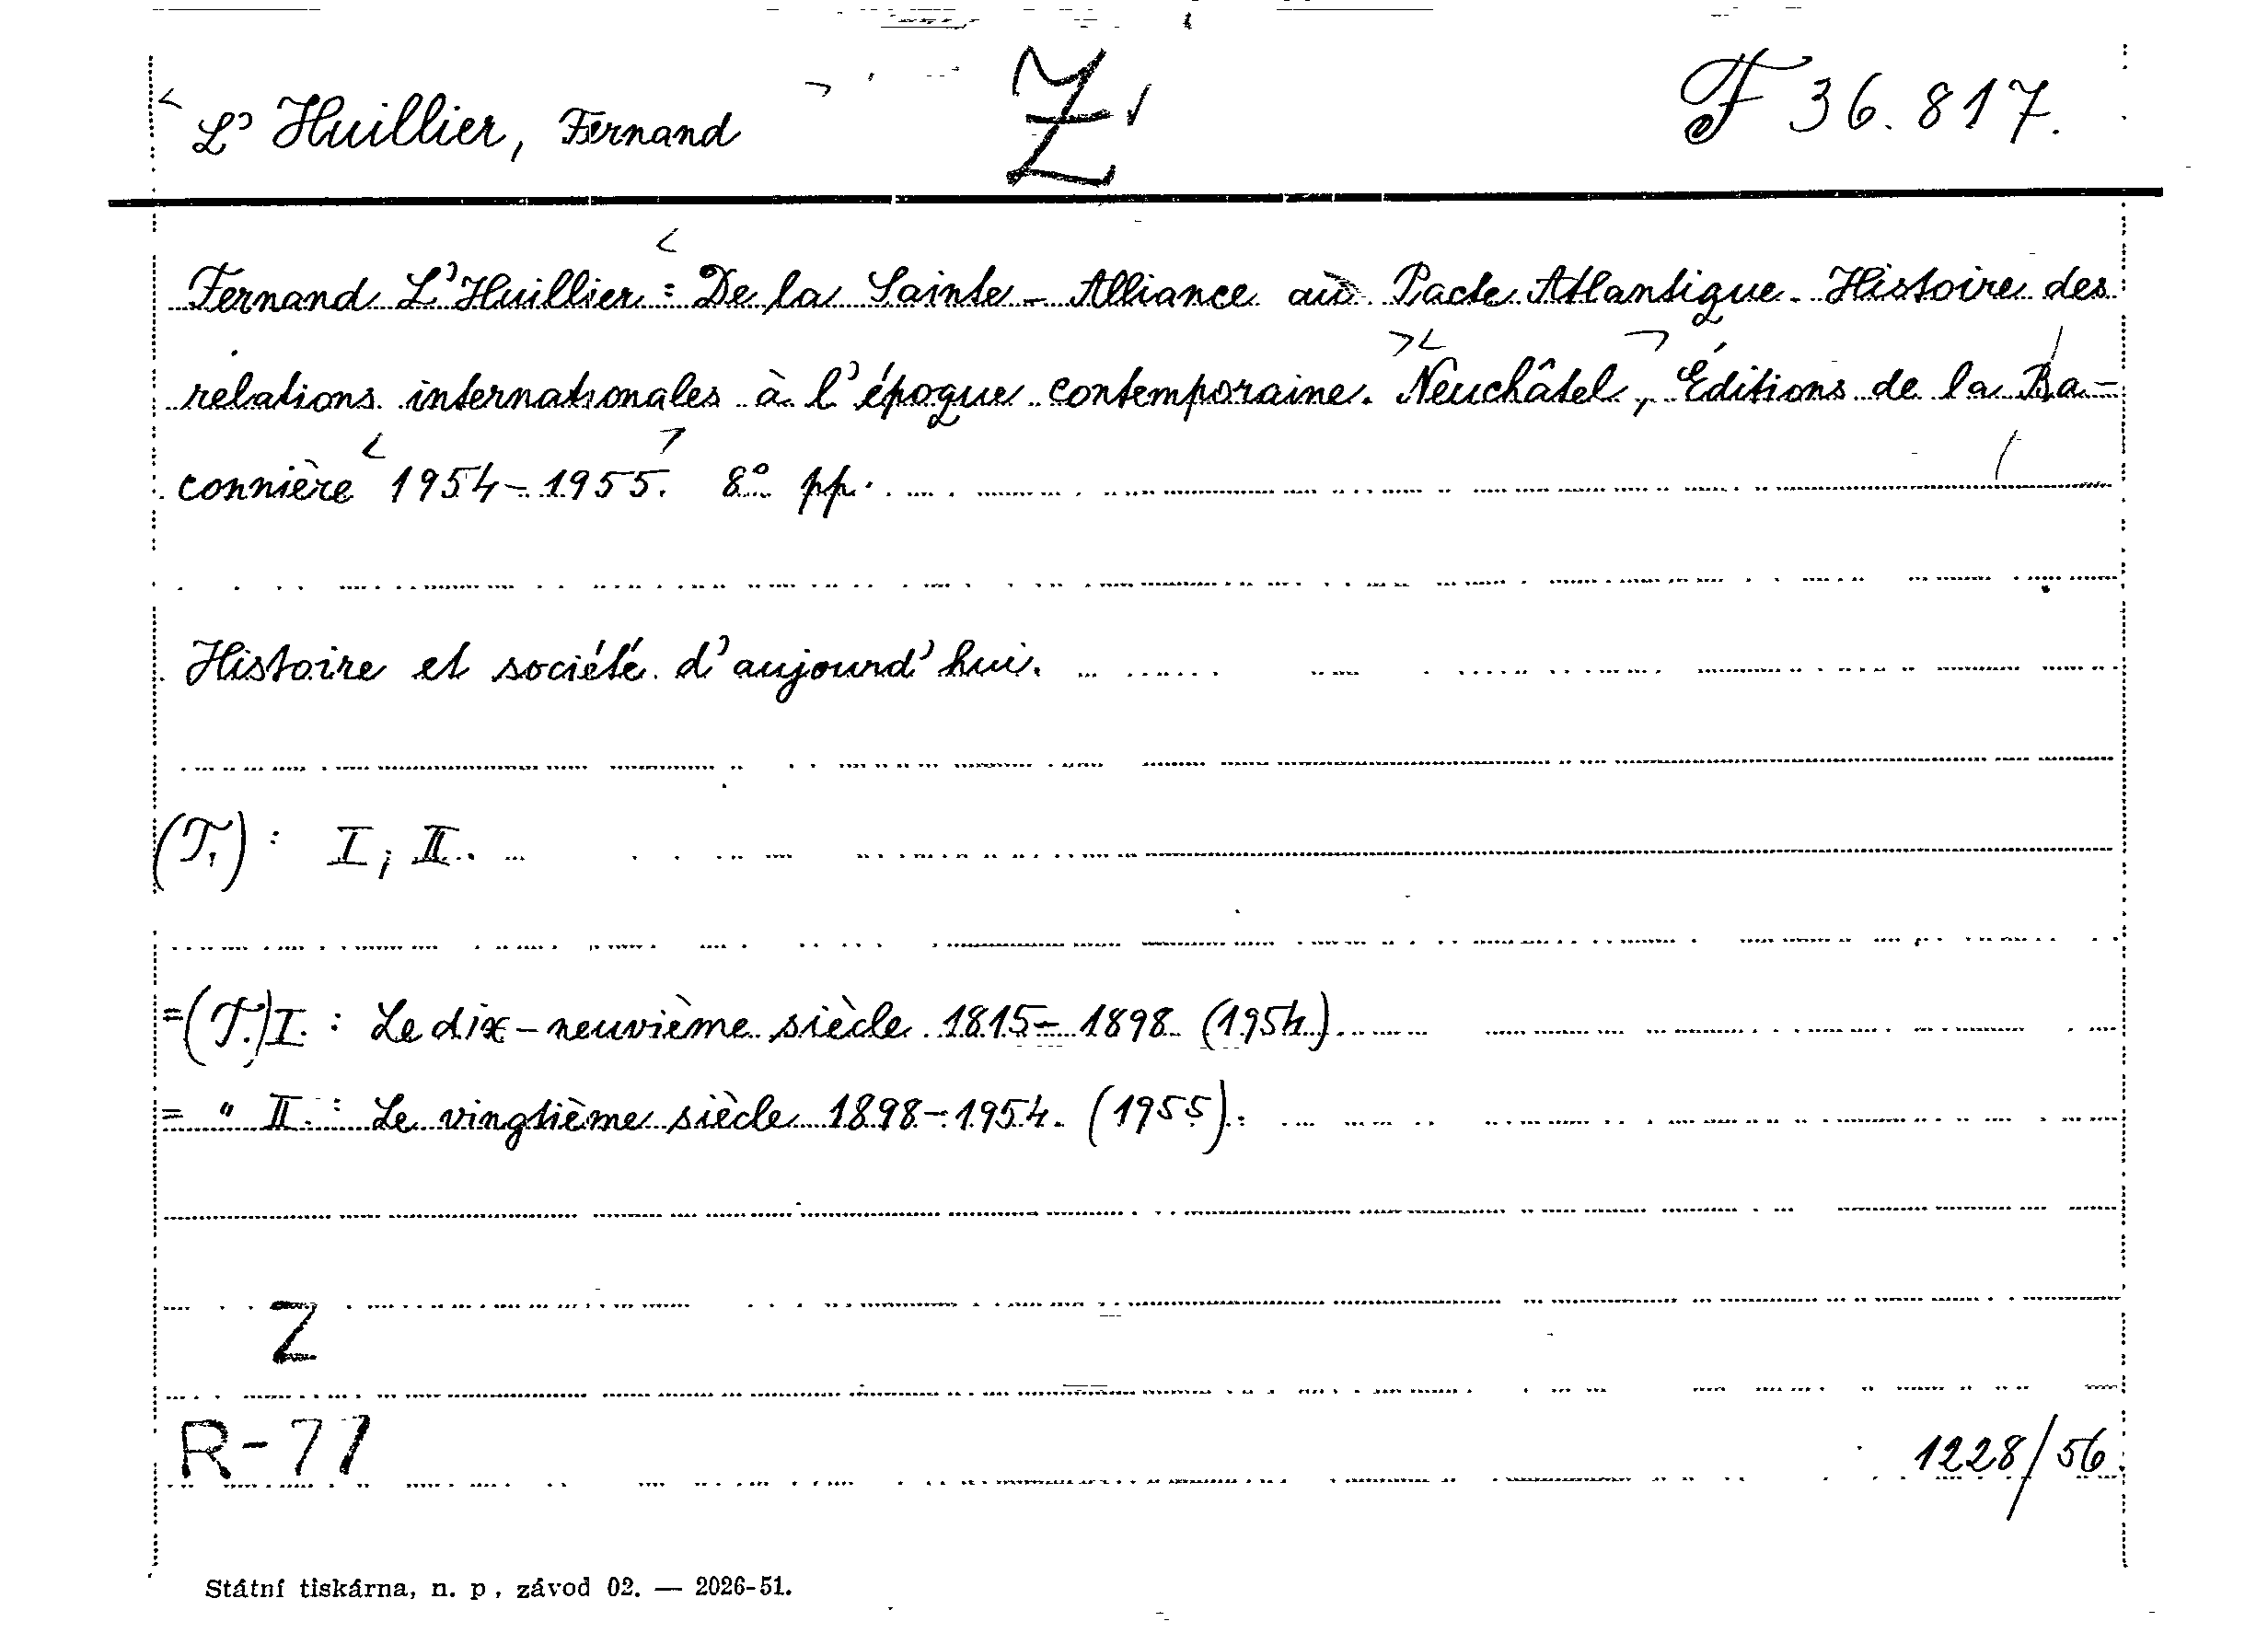 L'Huillier, Fernand Z F 36.817.
Fernand L'Huillier: De la Sainte-Alliance au Pacte Atlantique. Histoire des
relations internationales à l'époque contemporaine. Neuchâtel, Éditions de la Ba-
connière 1954-1955. 8° pp.
Histoire et société d'aujourd'hui.
(T.): I, II.
=(T.)I.: Le dix-neuvième siècle 1815-1898 (1954).
= " II.: Le vingtième siècle 1898-1954. (1955).
Z
R-77 1228/56
Státní tiskárna, n. p., závod 02. — 2026-51.